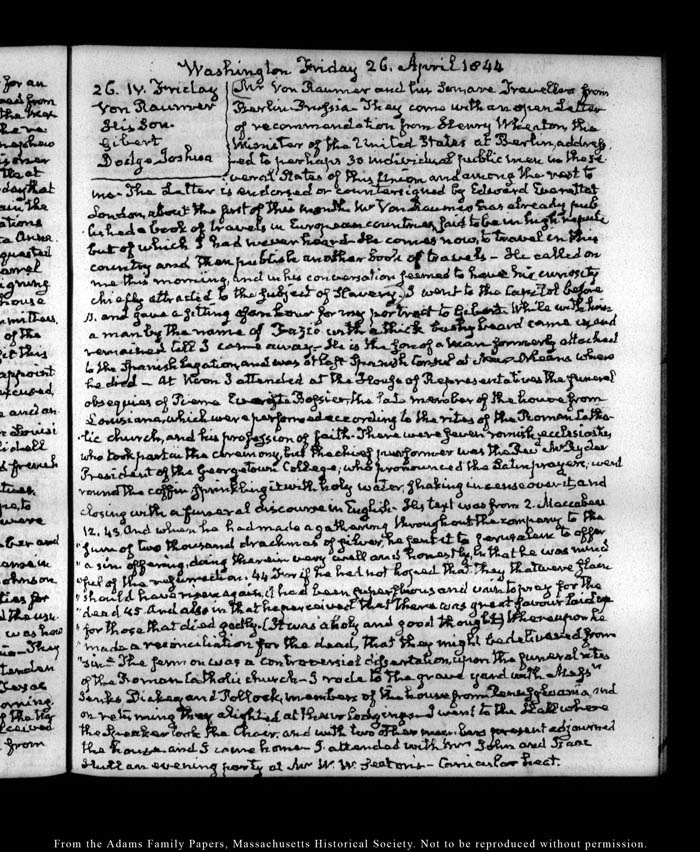 Washington Friday 26. April 1844
26. IV. Friday
Von Raumer
His Son.
Gilbert
Dodge Joshua
Mr Von Raumer and his Son are Travellers from
Berlin Prussia They come with an open Letter
of recommendation from Henry Wheaton, the
Minister of the United States at Berlin, address
ed to perhaps 30 individual public men in these
veral States of this Union and among the rest to
me. The Letter is endorsed or countersigned by Edward Everett at
London, about the first of this month Mr Von Raumer has already pub
lished a book of travels in European countries, said to be in high repute
but of which I had never heard. He comes now, to travel in this
country and then publish another book of travels — He called on
me this morning, and in his conversation seemed to have his curiosity
chiefly attracted to the subject of Slavery. I went to the Capitol before
11. and gave a sitting of an hour for my portrait to Gibert. While with him
a man by the name of Fazio with a thick bushy beard came in and
remained till I came away. He is the son of a man formerly attached
to the Spanish Legation, and was at last Spanish Consul at New-Orleans where
he died — At Noon I attended at the House of Representatives the funeral
obsequies of Pierre Bossier, the late member of the house from
Louisiana, which were performed according to the rites of the Roman Catho
lic church, and his profession of faith. There were fewer romish ecclesiastics
who took part in the ceremony, but the chief performer was the Revd Mr Ryder
President of the Georgetown College, who pronounced the Latin prayers, went
round the coffin, sprinkling it with holy water, shaking incense over it and
closing with a funeral discourse in English. His text was from 2. Maccabees
12. 43. And when he had made a gathering throughout the company to the
"sum of two thousand drachmas of silver, he sent it to Jerusalem to offer
"a sin offering, doing therein very well and honestly, in that he was mind
"ful of the resurrection. 44 For if he had not hoped that they that were slain
"should have risen again, it had been superfluous and vain to pray for the
"dead 45. And also in that he perceived that there was great favour laid up
"for those that died godly. (It was a holy and good thought) Whereupon he
"made a reconciliation for the dead, that they might be delivered from
"sin." The sermon was a controversial dissertation upon the funeral rites
of the Roman Catholic church. I rode to the grave yard with Messrs
Jenks, Dickey and Pollock, members of the house from Pennsylvania, and
on returning they alighted at their lodgings. I went to the Hall where
the Speaker took the Chair, and with two other members present adjourned
the house and I came home. I attended with Mrs John and Isaac
Hull an evening party at Mr W. W. Seaton's —
From the Adams Family Papers, Massachusetts Historical Society. Not to be reproduced without permission.